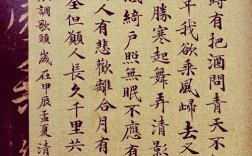 時有把酒問青天不
年我欲乘風歸去又
勝寒起舞弄清影
綺户照無眠不應有
人有悲歡離合月有
全但願人長久千里共
調歌頭 歲在甲辰孟夏清